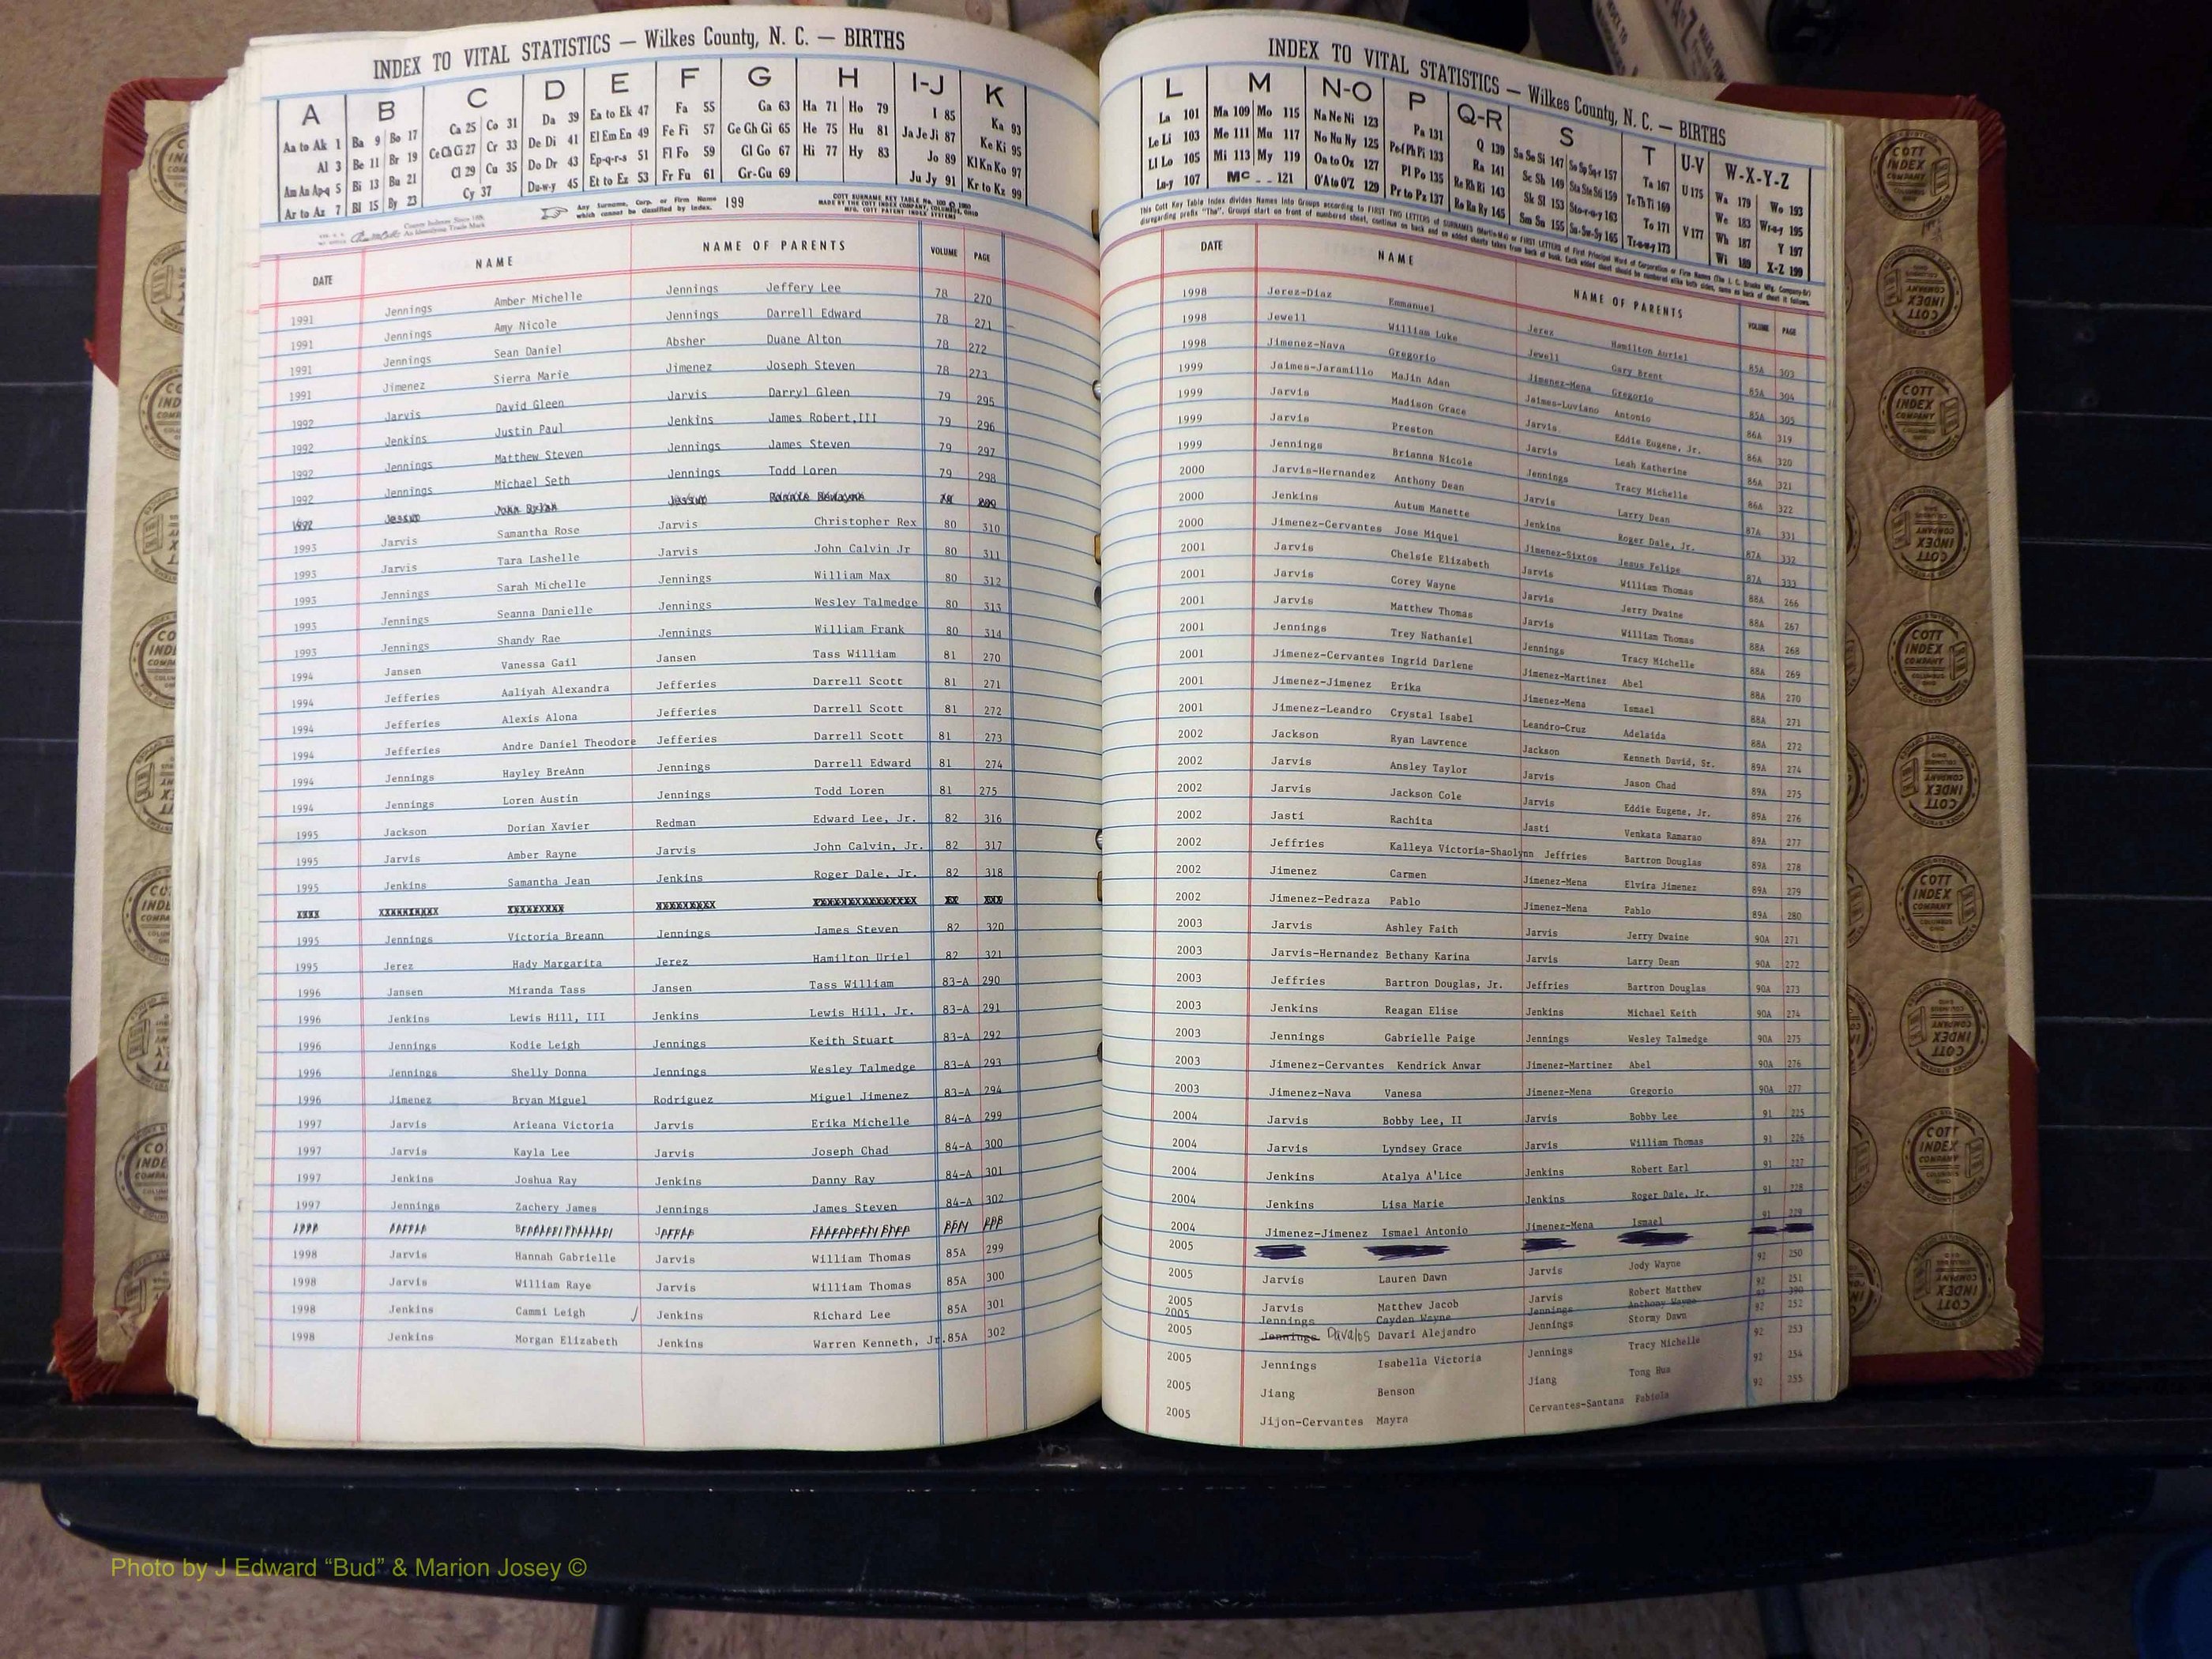 INDEX TO VITAL STATISTICS — Wilkes County, N. C. — BIRTHS
A B C D E F G H I-J K
Aa to Ak 1 Ba 9 Bo 17 Ca 25 Co 31 Da 39 Ea to Ek 47 Fa 55 Ga 63 Ha 71 Ho 79 I 85 Ka 93
Al 3 Be 11 Br 19 Ce Ch Ci 27 Cr 33 De Di 41 El Em En 49 Fe Fi 57 Ge Gh Gi 65 He 75 Hu 81 Ja Je Ji 87 Ke Ki 95
Am An Ap-q 5 Bi 13 Bu 21 Cl 29 Cu 35 Do Dr 43 Ep-q-r-s 51 Fl Fo 59 Gl Go 67 Hi 77 Hy 83 Jo 89 Kl Kn Ko 97
Ar to Az 7 Bl 15 By 23 Cy 37 Du-w-y 45 Et to Ez 53 Fr Fu 61 Gr-Gu 69 Ju Jy 91 Kr to Kz 99
Any Surname, Corp. or Firm Name which cannot be classified by Index. 199
DATE NAME NAME OF PARENTS VOLUME PAGE
1991 Jennings Amber Michelle Jennings Jeffery Lee 78 270
1991 Jennings Amy Nicole Jennings Darrell Edward 78 271
1991 Jennings Sean Daniel Absher Duane Alton 78 272
1991 Jimenez Sierra Marie Jimenez Joseph Steven 78 273
1992 Jarvis David Gleen Jarvis Darryl Gleen 79 295
1992 Jenkins Justin Paul Jenkins James Robert,III 79 296
1992 Jennings Matthew Steven Jennings James Steven 79 297
1992 Jennings Michael Seth Jennings Todd Loren 79 298
1992 Jessup Jessup
1993 Jarvis Samantha Rose Jarvis Christopher Rex 80 310
1993 Jarvis Tara Lashelle Jarvis John Calvin Jr 80 311
1993 Jennings Sarah Michelle Jennings William Max 80 312
1993 Jennings Seanna Danielle Jennings Wesley Talmedge 80 313
1993 Jennings Shandy Rae Jennings William Frank 80 314
1994 Jansen Vanessa Gail Jansen Tass William 81 270
1994 Jefferies Aaliyah Alexandra Jefferies Darrell Scott 81 271
1994 Jefferies Alexis Alona Jefferies Darrell Scott 81 272
1994 Jefferies Andre Daniel Theodore Jefferies Darrell Scott 81 273
1994 Jennings Hayley BreAnn Jennings Darrell Edward 81 274
1994 Jennings Loren Austin Jennings Todd Loren 81 275
1995 Jackson Dorian Xavier Redman Edward Lee, Jr. 82 316
1995 Jarvis Amber Rayne Jarvis John Calvin, Jr. 82 317
1995 Jenkins Samantha Jean Jenkins Roger Dale, Jr. 82 318
1995 Jennings Victoria Breann Jennings James Steven 82 320
1995 Jerez Hady Margarita Jerez Hamilton Uriel 82 321
1996 Jansen Miranda Tass Jansen Tass William 83-A 290
1996 Jenkins Lewis Hill, III Jenkins Lewis Hill, Jr. 83-A 291
1996 Jennings Kodie Leigh Jennings Keith Stuart 83-A 292
1996 Jennings Shelly Donna Jennings Wesley Talmedge 83-A 293
1996 Jimenez Bryan Miguel Rodriguez Miguel Jimenez 83-A 294
1997 Jarvis Arieana Victoria Jarvis Erika Michelle 84-A 299
1997 Jarvis Kayla Lee Jarvis Joseph Chad 84-A 300
1997 Jenkins Joshua Ray Jenkins Danny Ray 84-A 301
1997 Jennings Zachery James Jennings James Steven 84-A 302
1998 Jarvis Hannah Gabrielle Jarvis William Thomas 85A 299
1998 Jarvis William Raye Jarvis William Thomas 85A 300
1998 Jenkins Cammi Leigh Jenkins Richard Lee 85A 301
1998 Jenkins Morgan Elizabeth Jenkins Warren Kenneth, Jr. 85A 302
INDEX TO VITAL STATISTICS — Wilkes County, N. C. — BIRTHS
L M N-O P Q-R S T U-V W-X-Y-Z
La 101 Ma 109 Mo 115 Na Ne Ni 123 Pa 131 Q 139 Sa Se Si 147 So Sp Sq-r 157 Ta 167 U 175 Wa 179 Wo 193
Le Li 103 Me 111 Mu 117 No Nu Ny 125 Pe-f Ph Pi 133 Ra 141 Sc Sh 149 Sta Ste Sti 159 Te Th Ti 169 We 183 Wr-u-y 195
Ll Lo 105 Mi 113 My 119 Oa to Oz 127 Pl Po 135 Re Rh Ri 143 Sk Sl 153 Sto-r-u-y 163 To 171 Wh 187 Y 197
Lu-y 107 Mc 121 O'A to O'Z 129 Pr to Pz 137 Ro Ru Ry 145 Sm Sn 155 Su-Sw-Sy 165 Tr-u-w-y 173 V 177 Wi 189 X-Z 199
DATE NAME NAME OF PARENTS VOLUME PAGE
1998 Jerez-Diaz Emmanuel Jerez Hamilton Auriel 85A 303
1998 Jewell William Luke Jewell Gary Brent 85A 304
1998 Jimenez-Nava Gregorio Jimenez-Mena Gregorio 85A 305
1999 Jaimes-Jaramillo MaJin Adan Jaimes-Luviano Antonio 86A 319
1999 Jarvis Madison Grace Jarvis Eddie Eugene, Jr. 86A 320
1999 Jarvis Preston Jarvis Leah Katherine 86A 321
1999 Jennings Brianna Nicole Jennings Tracy Michelle 86A 322
2000 Jarvis-Hernandez Anthony Dean Jarvis Larry Dean 87A 331
2000 Jenkins Autum Manette Jenkins Roger Dale, Jr. 87A 332
2000 Jimenez-Cervantes Jose Miquel Jimenez-Sixtos Jesus Felipe 87A 333
2001 Jarvis Chelsie Elizabeth Jarvis William Thomas 88A 266
2001 Jarvis Corey Wayne Jarvis Jerry Dwaine 88A 267
2001 Jarvis Matthew Thomas Jarvis William Thomas 88A 268
2001 Jennings Trey Nathaniel Jennings Tracy Michelle 88A 269
2001 Jimenez-Cervantes Ingrid Darlene Jimenez-Martinez Abel 88A 270
2001 Jimenez-Jimenez Erika Jimenez-Mena Ismael 88A 271
2001 Jimenez-Leandro Crystal Isabel Leandro-Cruz Adelaida 88A 272
2002 Jackson Ryan Lawrence Jackson Kenneth David, Sr. 89A 274
2002 Jarvis Ansley Taylor Jarvis Jason Chad 89A 275
2002 Jarvis Jackson Cole Jarvis Eddie Eugene, Jr. 89A 276
2002 Jasti Rachita Jasti Venkata Ramarao 89A 277
2002 Jeffries Kalleya Victoria-Shaolynn Jeffries Bartron Douglas 89A 278
2002 Jimenez Carmen Jimenez-Mena Elvira Jimenez 89A 279
2002 Jimenez-Pedraza Pablo Jimenez-Mena Pablo 89A 280
2003 Jarvis Ashley Faith Jarvis Jerry Dwaine 90A 271
2003 Jarvis-Hernandez Bethany Karina Jarvis Larry Dean 90A 272
2003 Jeffries Bartron Douglas, Jr. Jeffries Bartron Douglas 90A 273
2003 Jenkins Reagan Elise Jenkins Michael Keith 90A 274
2003 Jennings Gabrielle Paige Jennings Wesley Talmedge 90A 275
2003 Jimenez-Cervantes Kendrick Anwar Jimenez-Martinez Abel 90A 276
2003 Jimenez-Nava Vanesa Jimenez-Mena Gregorio 90A 277
2004 Jarvis Bobby Lee, II Jarvis Bobby Lee 91 225
2004 Jarvis Lyndsey Grace Jarvis William Thomas 91 226
2004 Jenkins Atalya A'Lice Jenkins Robert Earl 91 227
2004 Jenkins Lisa Marie Jenkins Roger Dale, Jr. 91 228
2004 Jimenez-Jimenez Ismael Antonio Jimenez-Mena Ismael 91 229
2005
2005 Jarvis Lauren Dawn Jarvis Jody Wayne 92 250
2005 Jarvis Matthew Jacob Jarvis Robert Matthew 92 251
2005 Jennings Cayden Wayne Jennings Anthony Wayne 92 390
2005 Jennings Davalos Davari Alejandro Jennings Stormy Dawn 92 252
2005 Jennings Isabella Victoria Jennings Tracy Michelle 92 253
2005 Jiang Benson Jiang Tong Hua 92 254
2005 Jijon-Cervantes Mayra Cervantes-Santana Fabiola 92 255
COTT INDEX COMPANY
Photo by J Edward “Bud” & Marion Josey ©